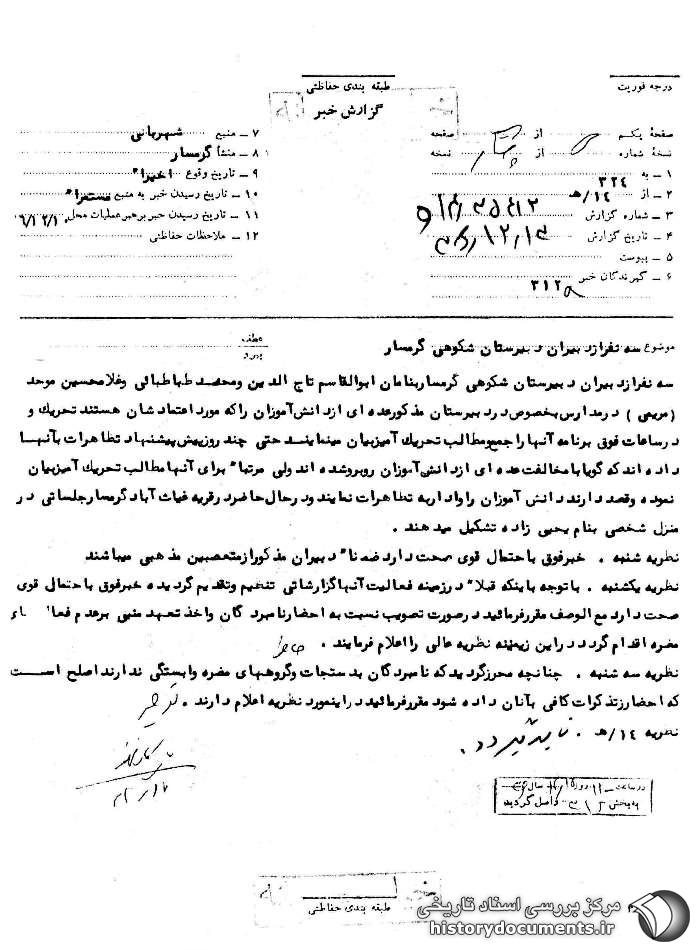 درجه فوریت
طبقه بندی حفاظتی
گزارش خبر
صفحهٔ یکم از صفحه
نسخهٔ شماره از نسخه
۱ ـ به ۳۲٤
۲ ـ از ۱٤/هـ
۳ ـ شماره گزارش
٤ ـ تاریخ گزارش
۵ ـ پیوست
۶ ـ گیرندگان خبر ۳۱۲
۷ ـ منبع شهربانی
۸ ـ منشأ گرمسار
۹ ـ تاریخ وقوع اخیرا"
۱۰ ـ تاریخ رسیدن خبر به منبع مستمرا"
۱۱ ـ تاریخ رسیدن خبر برهبر عملیات محل
۱۲ ـ ملاحظات حفاظتی
موضوع سه نفر از دبیران دبیرستان شکوهی گرمسار
عطف
پیرو
سه نفر از دبیران دبیرستان شکوهی گرمسار بنامان ابوالقاسم تاج الدین و محمد طباطبائی و غلامحسین موحد
(مربی) در مدارس بخصوص در دبیرستان مذکور عده ای از دانش آموزان را که مورد اعتماد شان هستند تحریك و
در ساعات فوق برنامه آنها را جمع و مطالب تحریك آمیز بیان مینمایند حتی چند روز پیش پیشنهاد تظاهرات بآنها
داده اند که گویا با مخالفت عده ای از دانش آموزان روبرو شده اند ولی مرتبا" برای آنها مطالب تحریك آمیز بیان
نموده و قصد دارند دانش آموزان را وادار به تظاهرات نمایند و در حال حاضر در قریه غیاث آباد گرمسار جلساتی در
منزل شخصی بنام یحیی زاده تشکیل میدهند .
نظریه شنبه . خبر فوق باحتمال قوی صحت دارد ضمنا" دبیران مذکور از متعصبین مذهبی میباشند
نظریه یکشنبه . با توجه باینکه قبلا" در زمینه فعالیت آنها گزارشاتی تنظیم و تقدیم گردیده خبر فوق باحتمال قوی
صحت دارد مع الوصف مقرر فرمائید در صورت تصویب نسبت به احضار نامبرد گان و اخذ تعهد مبنی بر عدم
مضره اقدام گردد در این زمینه نظریه عالی را اعلام فرمایند .
نظریه سه شنبه . چنانچه محرز گردید که نامبردگان بدستجات و گروههای مضره وابستگی ندارند اصلح است
که احضار و تذکرات کافی بآنان داده شود مقرر فرمائید در اینمورد نظریه اعلام دارند .
نظریه ۱٤/هـ . تایید میگردد .
در ساعت روز سال
به بخش ۳۱۲ واصل گردید
طبقه بندی حفاظتی
مرکز بررسی اسناد تاریخی
historydocuments.ir